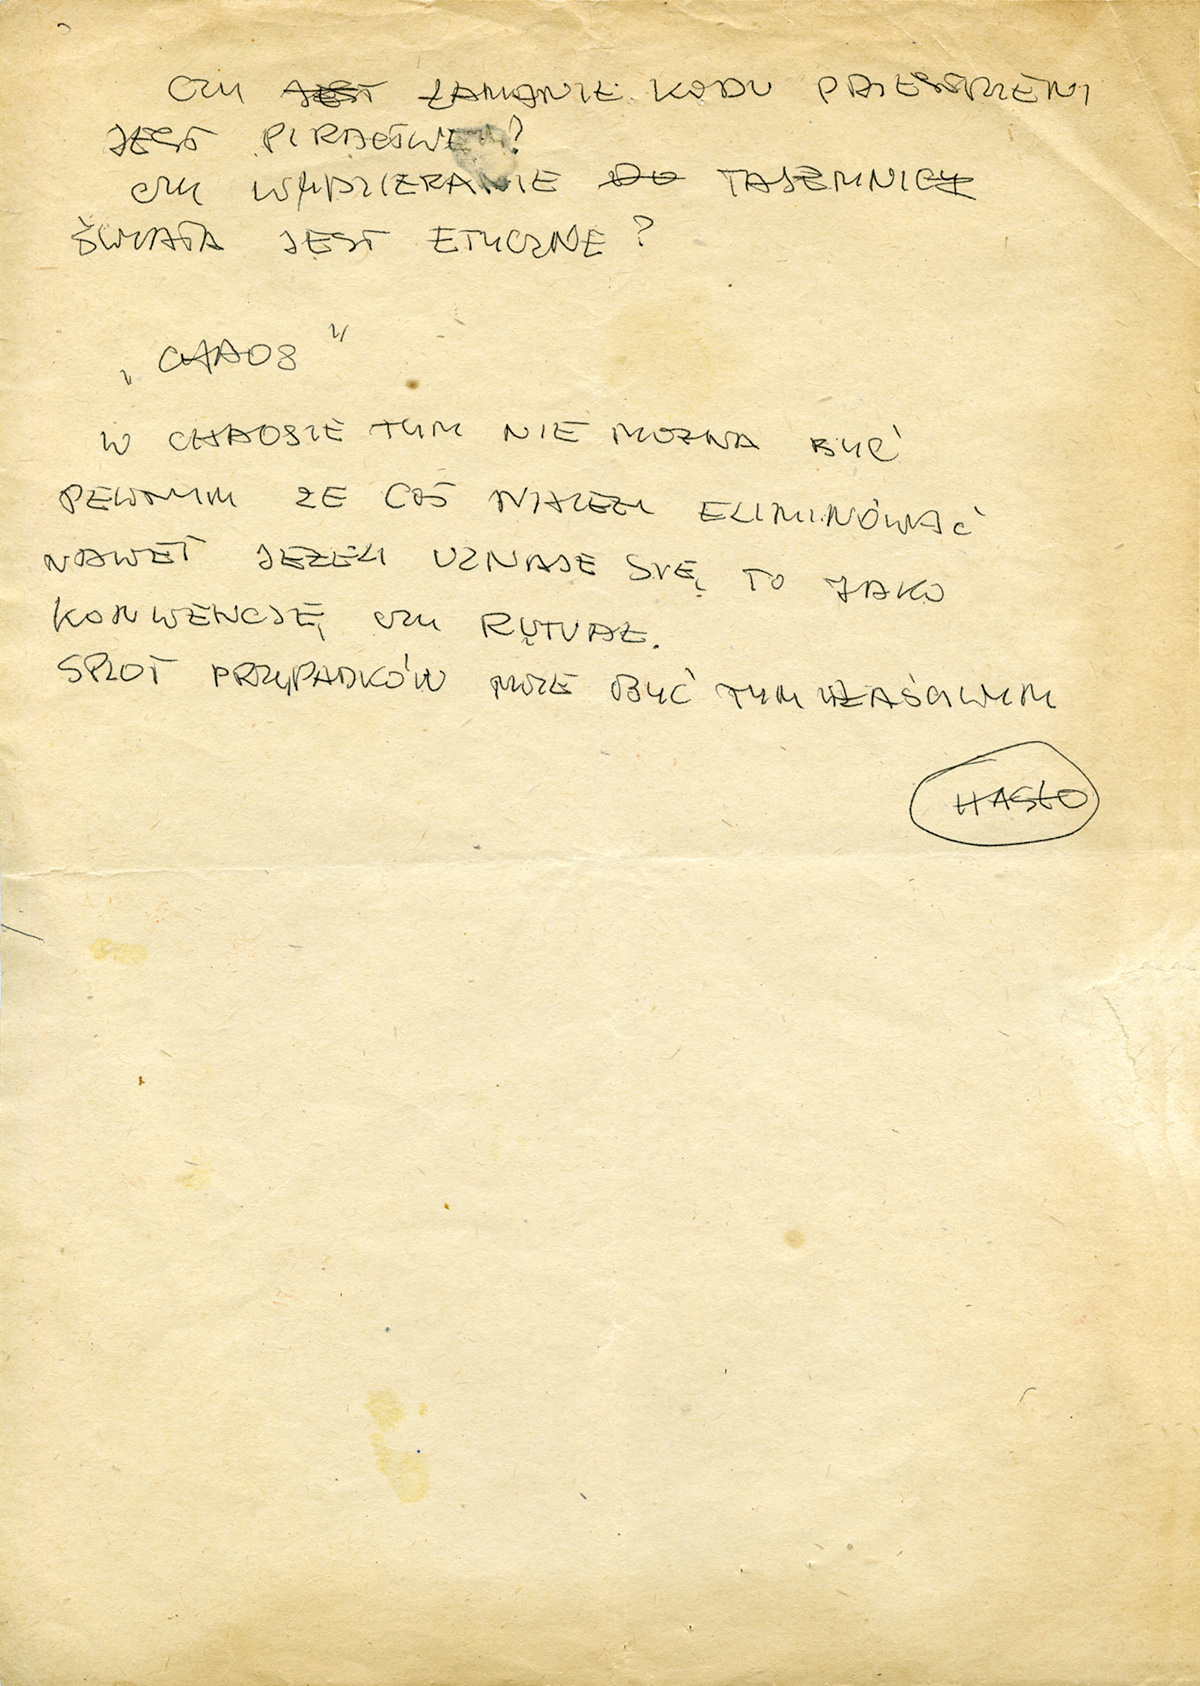 CZY ~~JEST~~ ŁAMANIE KODU PRZESTRZENI
JEST PIRACTWEM?
CZY WYDZIERANIE ~~DO~~ TAJEMNICY
ŚWIATA JEST ETYCZNE?
„CHAOS”
W CHAOSIE TYM NIE MOŻNA BYĆ
PEWNYM ŻE COŚ NALEŻY ELIMINOWAĆ
NAWET JEŻELI UZNAJE SIĘ TO JAKO
KONWENCJĘ, CZY RYTUAŁ.
SPLOT PRZYPADKÓW MOŻE BYĆ TYM WŁAŚCIWYM
HASŁO